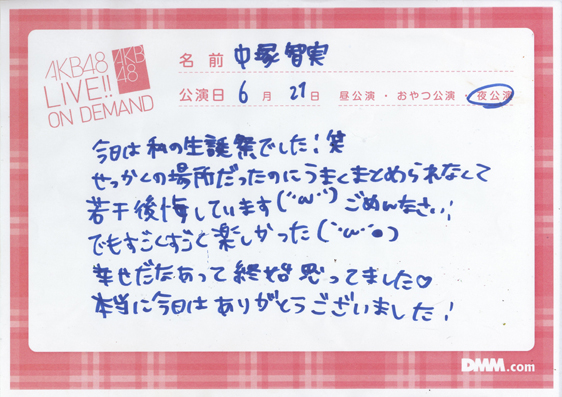 AKB48
LIVE!!
ON DEMAND
AKB
48
名前 中塚智実
公演日 6月29日 昼公演・おやつ公演・夜公演
今日は私の生誕祭でした!笑
せっかくの場所だったのにうまくまとめられなくて
若干後悔しています(´･ω･`)ごめんなさい!
でもすごくすごく楽しかった(´･ω･●)
幸せだなあって終始思ってました♡
本当に今日はありがとうございました!
DMM.com